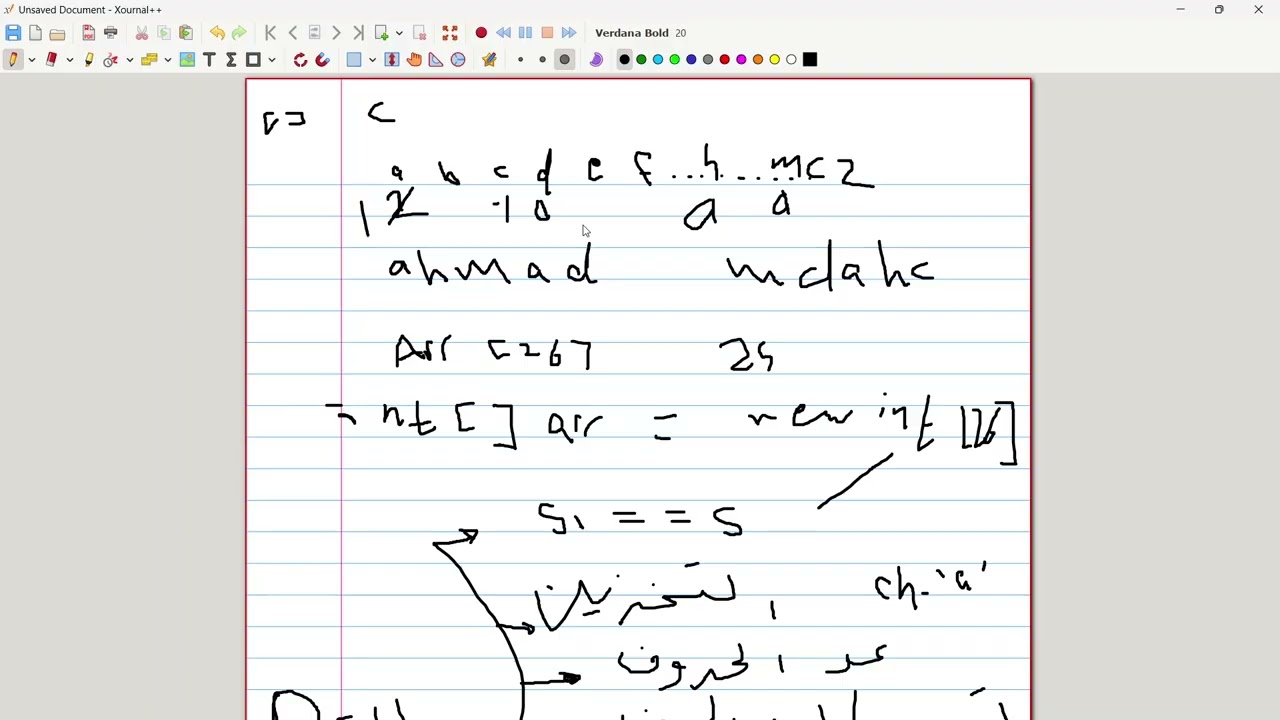 Unsaved Document - Xournal++
Verdana Bold 20
[] c
a b c d e f ...h... m c z
1 2 -1 0 a a
ahmad mdahc
Arr [26] 25
int [ ] arr = new int [26]
S1 == S
لتخزين ch-'a'
عد الحروف